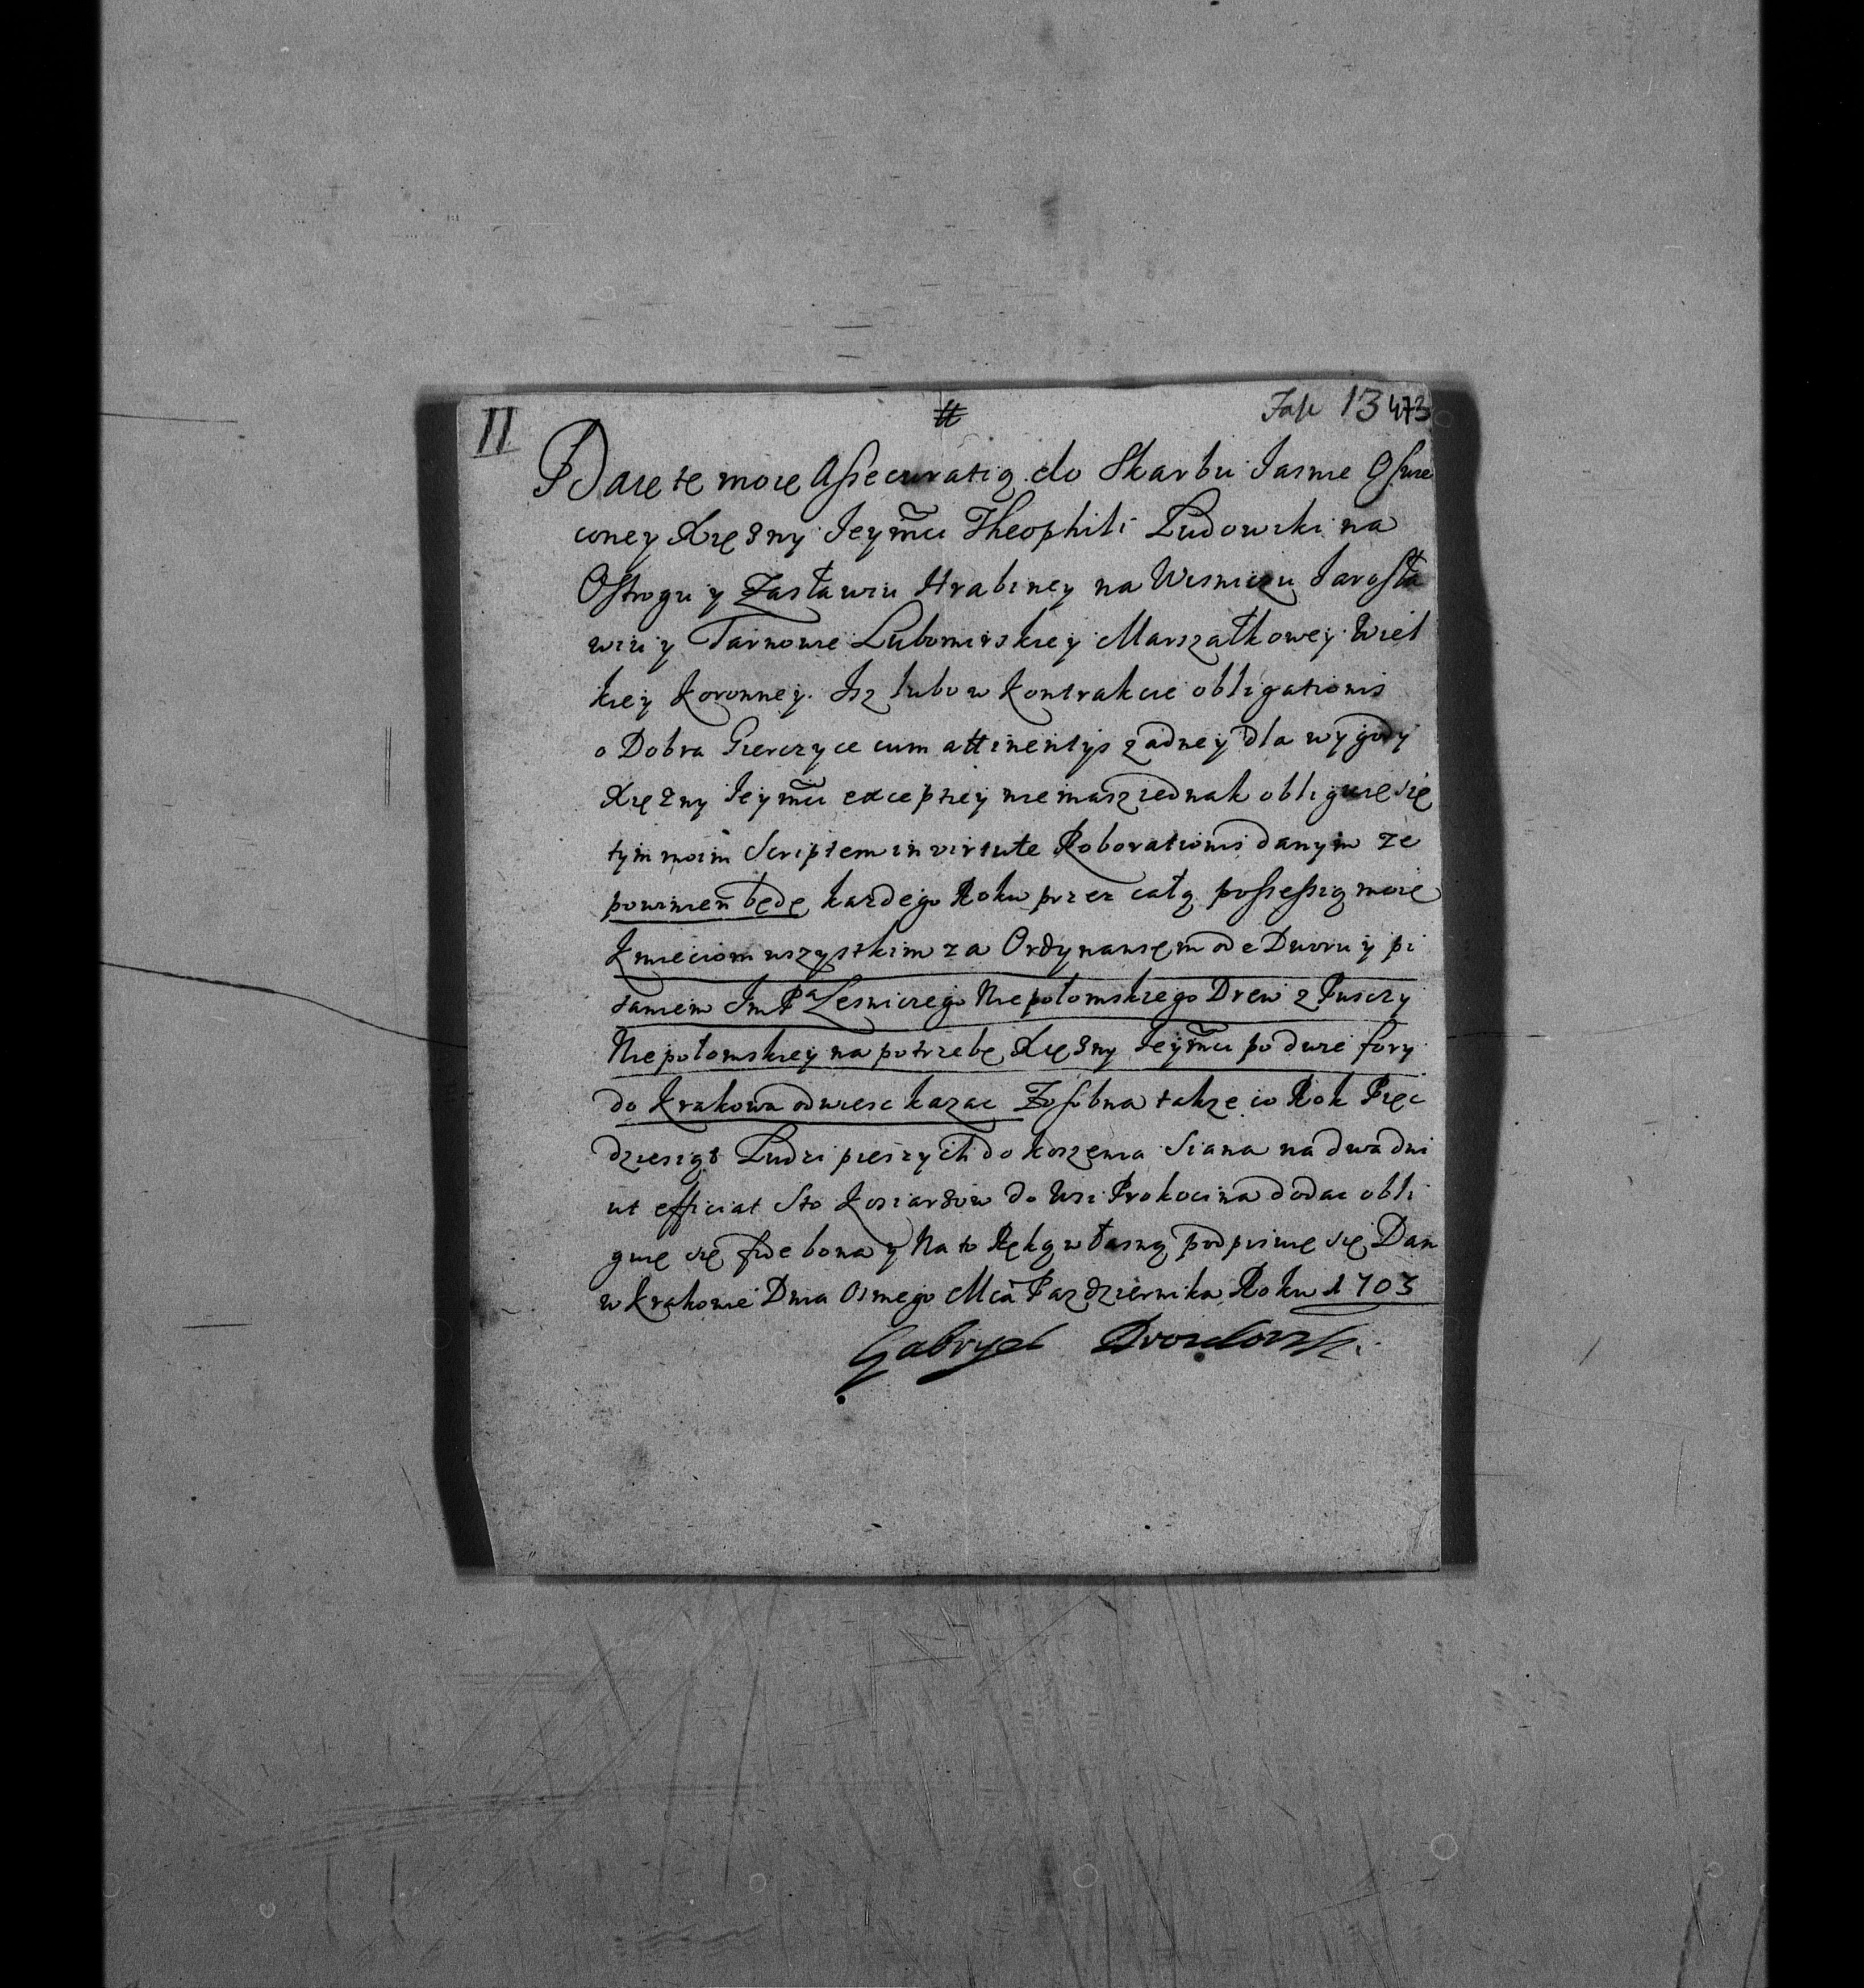 II # Fasc 13 473
Daie te moie Assecuratią do Skarbu Jasnie Oswie
coney Xięzny Jeymci Theophili Ludowiki na
Ostrogu y Zasławiu Hrabiney na Wisniczu Jarosła
wiu y Tarnowie Lubomirskiey Marszałkowey Wiel
kiey Koronney. Isz lubo w kontrakcie obligationis
o Dobra Gierczyce cum attinentijs zadney dla wygody
Xięzny Jeymci excepthey niemasz iednak obliguię się
tym moim Scriptem in virtute Roborationis danym ze
powinien będę kazdego Roku przez całą possessią moię
Kmieciom wszystkim za Ordynansęm ode Dworu y pi
saniem Im Pa Lesniczego Niepołomskiego Drew z Pusczy
Niepołomskiey na potrzebę Xięzny Jeymci po dwie fory
do Krakowa odwiesc kazac Zosobna takze co Rok Pięc
dziesiąt Ludzi pieszych do koszenia Siana na dwa dni
ut efficiat Sto Kosiarzow do Wsi Prokocima dodac obli
guię się fide bona y Na to Ręką własną podpisuię się Dan
w Krakowie Dnia Osmego Mca Pazdziernika Roku 1703
Gabryel